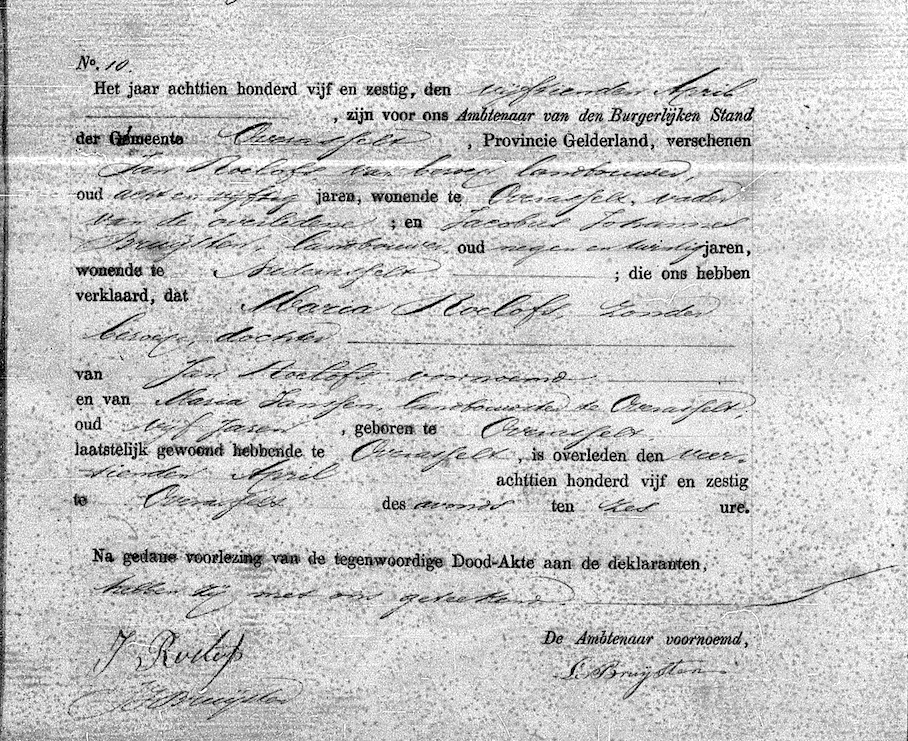 No. 10.
Het jaar achttien honderd vijf en zestig, den vijftienden April
, zijn voor ons Ambtenaar van den Burgerlijken Stand
der Gemeente Overasselt , Provincie Gelderland, verschenen
Jan Roelofs van beroep landbouwer,
oud acht en vijftig jaren, wonende te Overasselt, vader
van de overledene ; en Jacobus Johannes
Bruijsten, landbouwer oud negen en twintig jaren,
wonende te Nederasselt ; die ons hebben
verklaard, dat Maria Roelofs, zonder
beroep, dochter
van Jan Roelofs voornoemd
en van Maria Janssen, landbouwster te Overasselt,
oud vijf jaren , geboren te Overasselt.
laatstelijk gewoond hebbende te Overasselt , is overleden den veer-
tienden April achttien honderd vijf en zestig
te Overasselt des avonds ten zes ure.
Na gedane voorlezing van de tegenwoordige Dood-Akte aan de deklaranten,
hebben zij met ons geteekend.
De Ambtenaar voornoemd,
J Roelofs
Bruijsten
Bruijsten